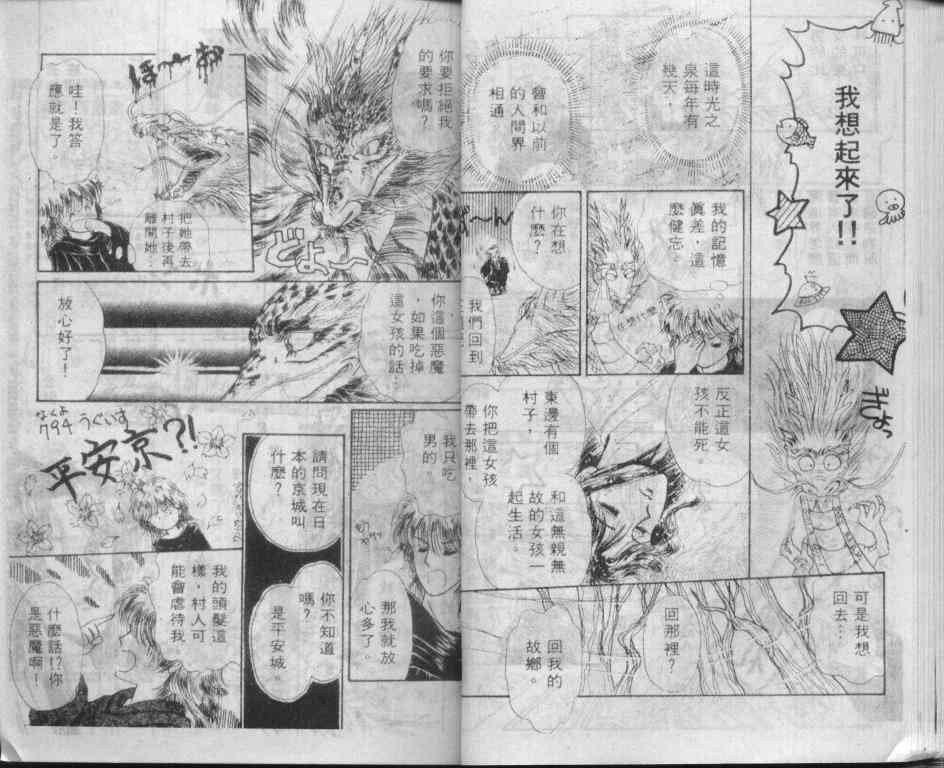 我想起來了!!
ぎょっ
這時光之
泉每年有
幾天，
會和以前
的人間界
相通。
我的記憶
眞差，這
麼健忘。
在想什麼
你在想
什麼？
我們回到
反正這女
孩不能死，
東邊有個
村子，
你把這女孩
帶去那裡，
和這無親無
故的女孩一
起生活。
可是我想
回去…
回那裡？
回我的
故鄉。
你要拒絕我
的要求嗎？
どよ〜
把她帶去
村子後再
離開她…
哇！我答
應就是了。
你這個惡魔
，如果吃掉
這女孩的話…
放心好了！
我只吃
男的。
那我就放
心多了。
請問現在日
本的京城叫
什麼？
你不知道
嗎？
是平安城。
なくよ
794うぐいす
平安京?!
我的頭髮這
樣，村人可
能會虐待我。
什麼話!?你
是惡魔啊！